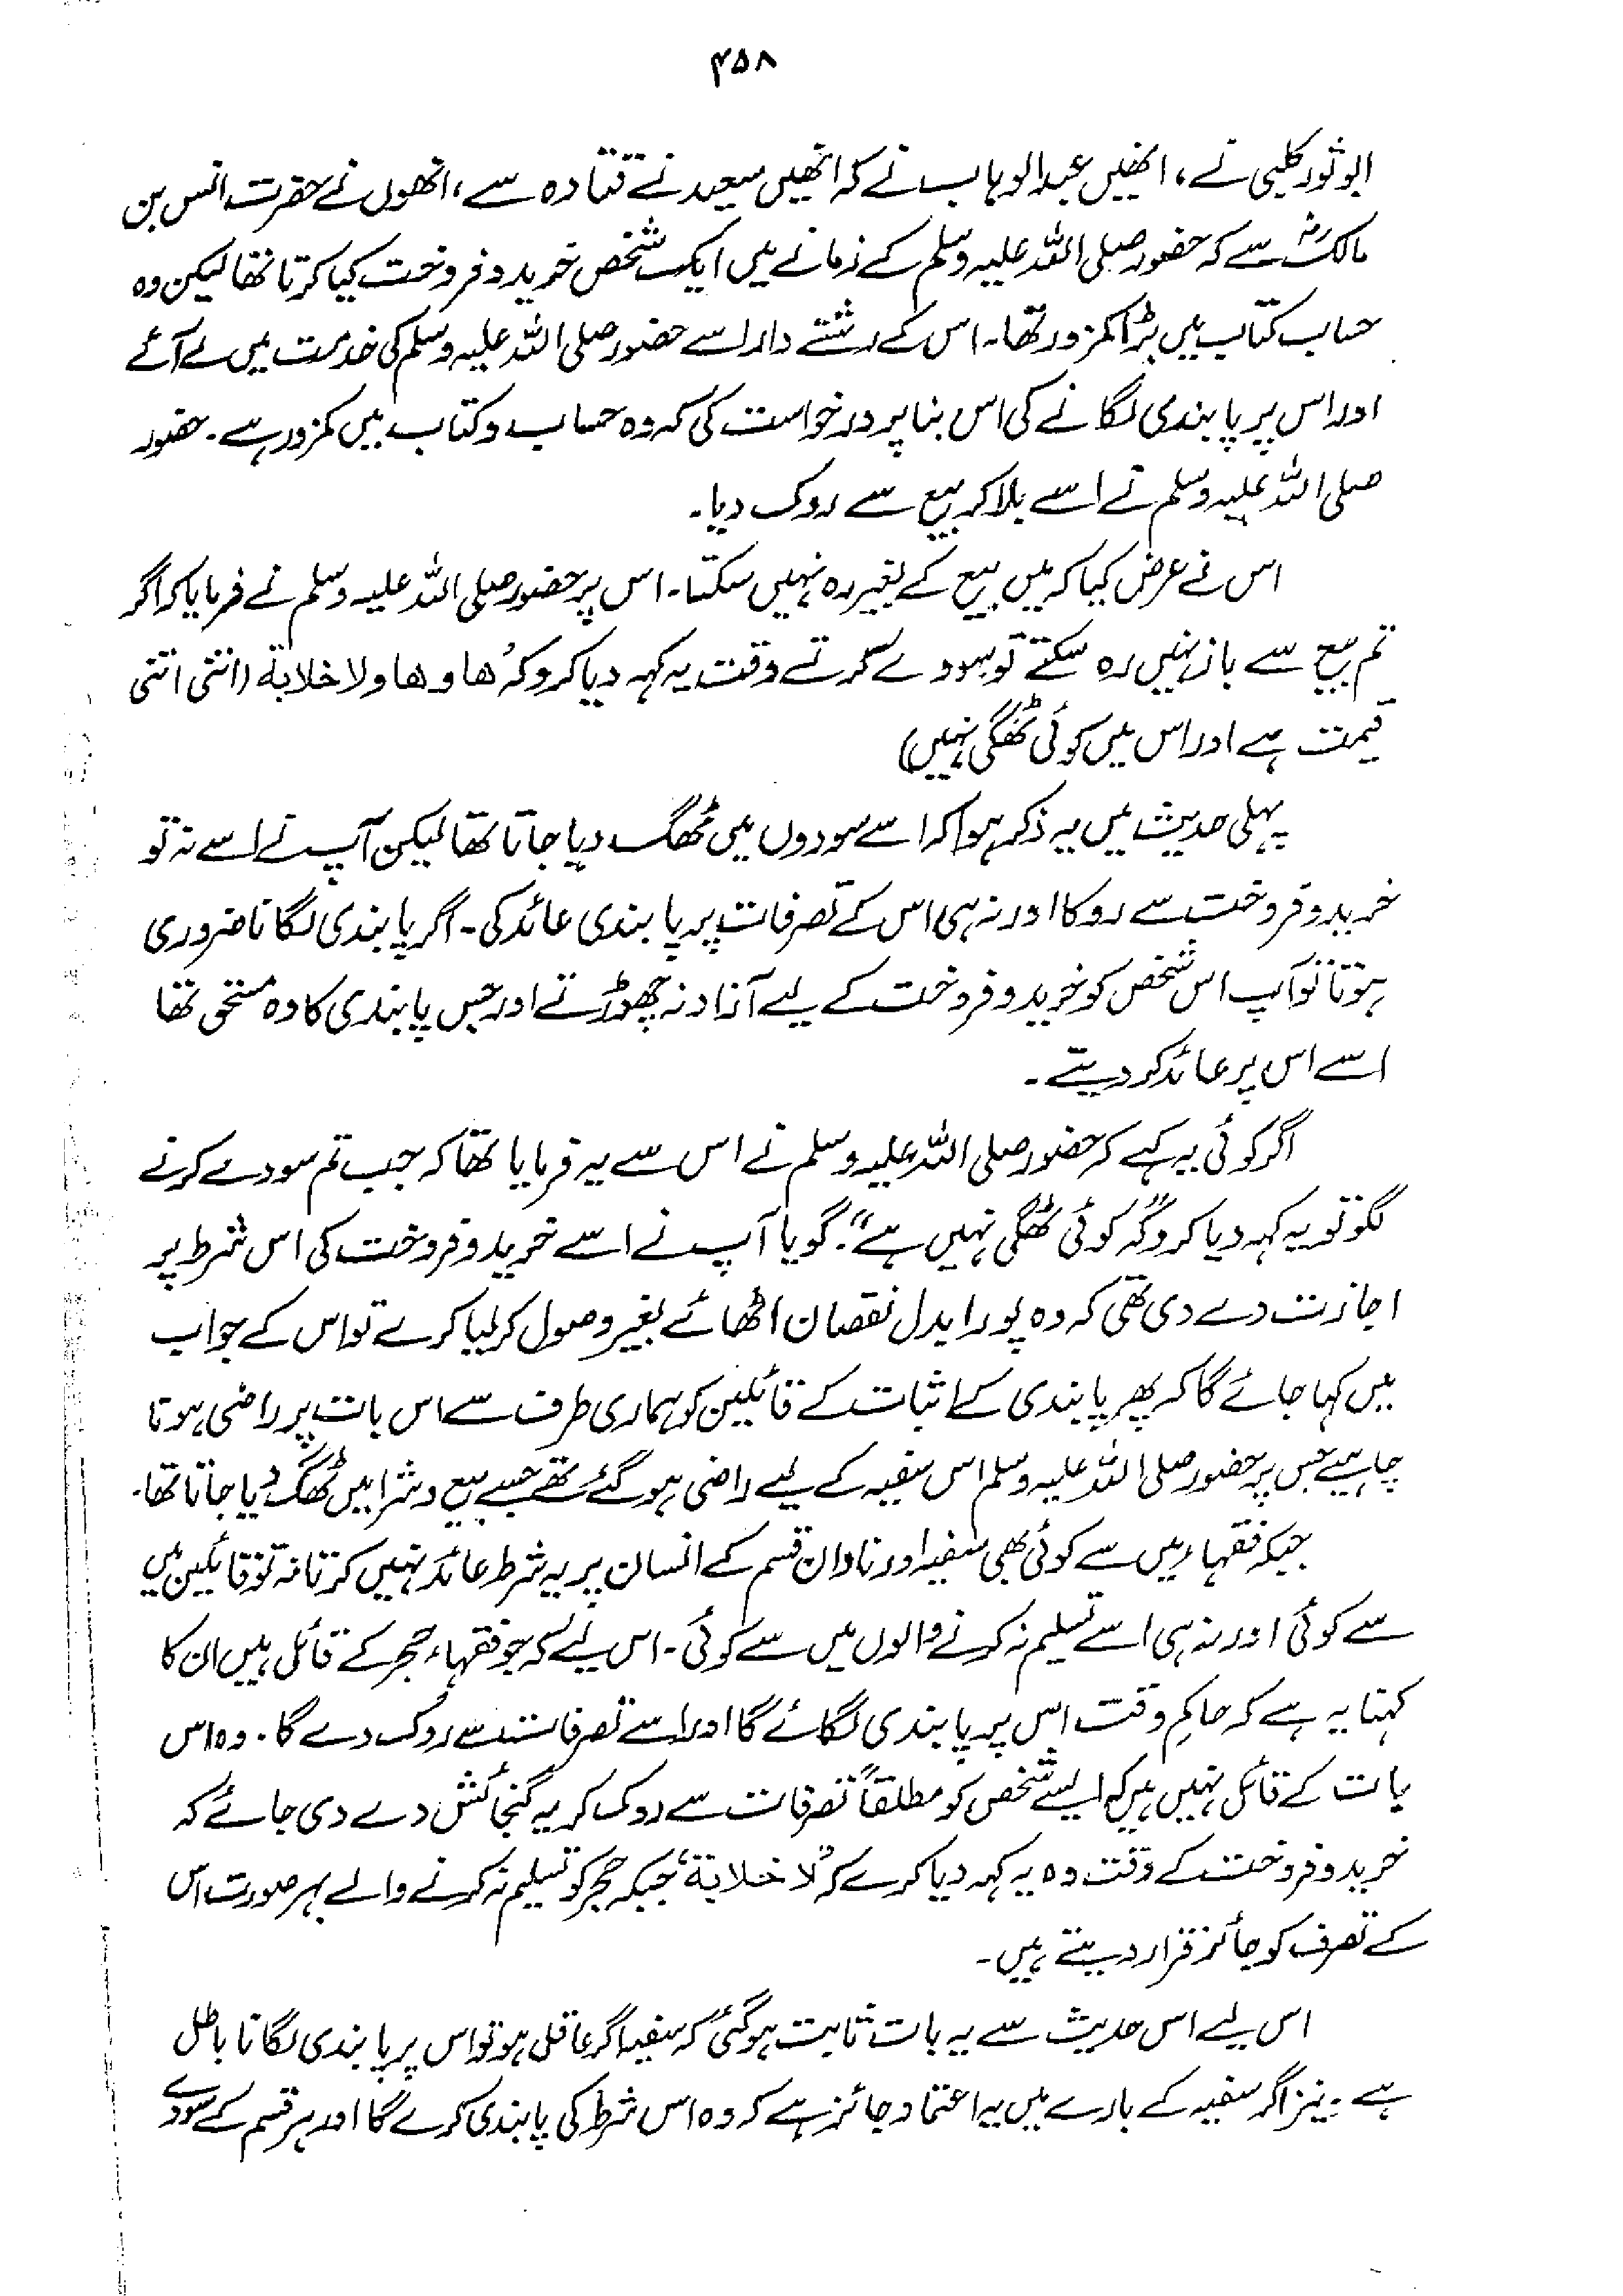 ۴۵۸
ابو ثور کلبی نے، انھیں عبدالوہاب نے کہ انھیں سعید نے قتادہ سے، انھوں نے حضرت انس بن
مالکؓ سے کہ حضور صلی اللہ علیہ وسلم کے زمانے میں ایک شخص خرید و فروخت کیا کرتا تھا لیکن وہ
حساب کتاب میں بڑا کمزور تھا۔ اس کے رشتے دار اسے حضور صلی اللہ علیہ وسلم کی خدمت میں لے آئے
اور اس پر پابندی لگانے کی اس بنا پر درخواست کی کہ وہ حساب و کتاب میں کمزور ہے۔ حضور
صلی اللہ علیہ وسلم نے اسے بلا کر بیع سے روک دیا۔
اس نے عرض کیا کہ میں بیع کے بغیر رہ نہیں سکتا۔ اس پر حضور صلی اللہ علیہ وسلم نے فرمایا کہ اگر
تم بیع سے باز نہیں رہ سکتے تو سودے کرتے وقت یہ کہہ دیا کرو کہ ’ھا و ھا ولا خلابة (اتنی اتنی
قیمت ہے اور اس میں کوئی ٹھگی نہیں)
پہلی حدیث میں یہ ذکر ہوا کہ اسے سودوں میں ٹھگ دیا جاتا تھا لیکن آپ نے اسے نہ تو
خرید و فروخت سے روکا اور نہ ہی اس کے تصرفات پر پابندی عائد کی۔ اگر پابندی لگانا ضروری
ہوتا تو آپ اس شخص کو خرید و فروخت کے لیے آزاد نہ چھوڑتے اور جس پابندی کا وہ مستحق تھا
اسے اس پر عائد کر دیتے۔
اگر کوئی یہ کہے کہ حضور صلی اللہ علیہ وسلم نے اس سے یہ فرمایا تھا کہ جب تم سودے کرنے
لگو تو یہ کہہ دیا کرو کہ ”کوئی ٹھگی نہیں ہے“۔ گویا آپ نے اسے خرید و فروخت کی اس شرط پر
اجازت دے دی تھی کہ وہ پورا بدل نقصان اٹھائے بغیر وصول کر لیا کرے تو اس کے جواب
میں کہا جائے گا کہ پھر پابندی کے اثبات کے قائلین کو ہماری طرف سے اس بات پر راضی ہونا
چاہیے جس پر حضور صلی اللہ علیہ وسلم اس سفیہ کے لیے راضی ہو گئے تھے جسے بیع و شرا میں ٹھگ دیا جاتا تھا۔
جبکہ فقہاء میں سے کوئی بھی سفیہ اور نادان قسم کے انسان پر یہ شرط عائد نہیں کرتا نہ تو قائلین میں
سے کوئی اور نہ ہی اسے تسلیم نہ کرنے والوں میں سے کوئی۔ اس لیے کہ جو فقہاء حجر کے قائل ہیں ان کا
کہنا یہ ہے کہ حاکمِ وقت اس پر پابندی لگائے گا اور اسے تصرفات سے روک دے گا۔ وہ اس
بات کے قائل نہیں ہیں کہ ایسے شخص کو مطلقاً تصرفات سے روک کر یہ گنجائش دے دی جائے کہ
خرید و فروخت کے وقت وہ یہ کہہ دیا کرے کہ ”لا خلابة“ جبکہ حجر کو تسلیم نہ کرنے والے بہر صورت اس
کے تصرف کو جائز قرار دیتے ہیں۔
اس لیے اس حدیث سے یہ بات ثابت ہو گئی کہ سفیہ اگر عاقل ہو تو اس پر پابندی لگانا باطل
ہے۔ نیز اگر سفیہ کے بارے میں یہ اعتماد جائز ہے کہ وہ اس شرط کی پابندی کرے گا اور ہر قسم کے سودے